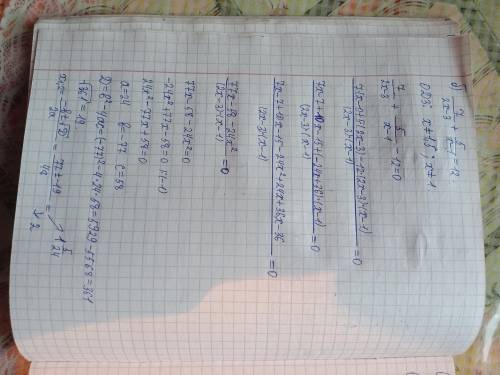 б) 7/(2x-3) + 5/(x-1) = 12
ОДЗ: x≠1,5; x≠1
7/(2x-3) + 5/(x-1) - 12=0
(7(x-1)+5(2x-3)-12(2x-3)·(x-1))/((2x-3)·(x-1)) = 0
(7x-7+10x-15+(-24x+36)·(x-1))/((2x-3)·(x-1)) = 0
(7x-7+10x-15-24x²+24x+36x-36)/((2x-3)·(x-1)) = 0
(77x-58-24x²)/((2x-3)·(x-1)) = 0
77x-58-24x²=0
-24x²+77x-58=0 |·(-1)
24x²-77x+58=0
a=24 b=-77 c=58
D=b²-4ac=(-77)²-4·24·58=5929-5568=361
√361=19
x₁,₂= (-b±√D)/2a = (77±19)/48 = 1 5/24
2